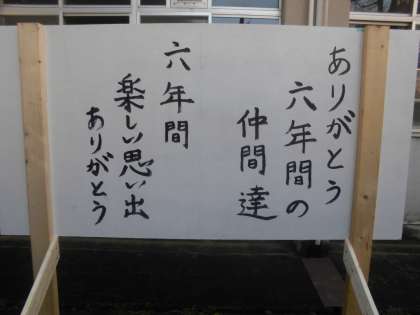 ありがとう
六年間の
仲間達
六年間
楽しい思い出
ありがとう